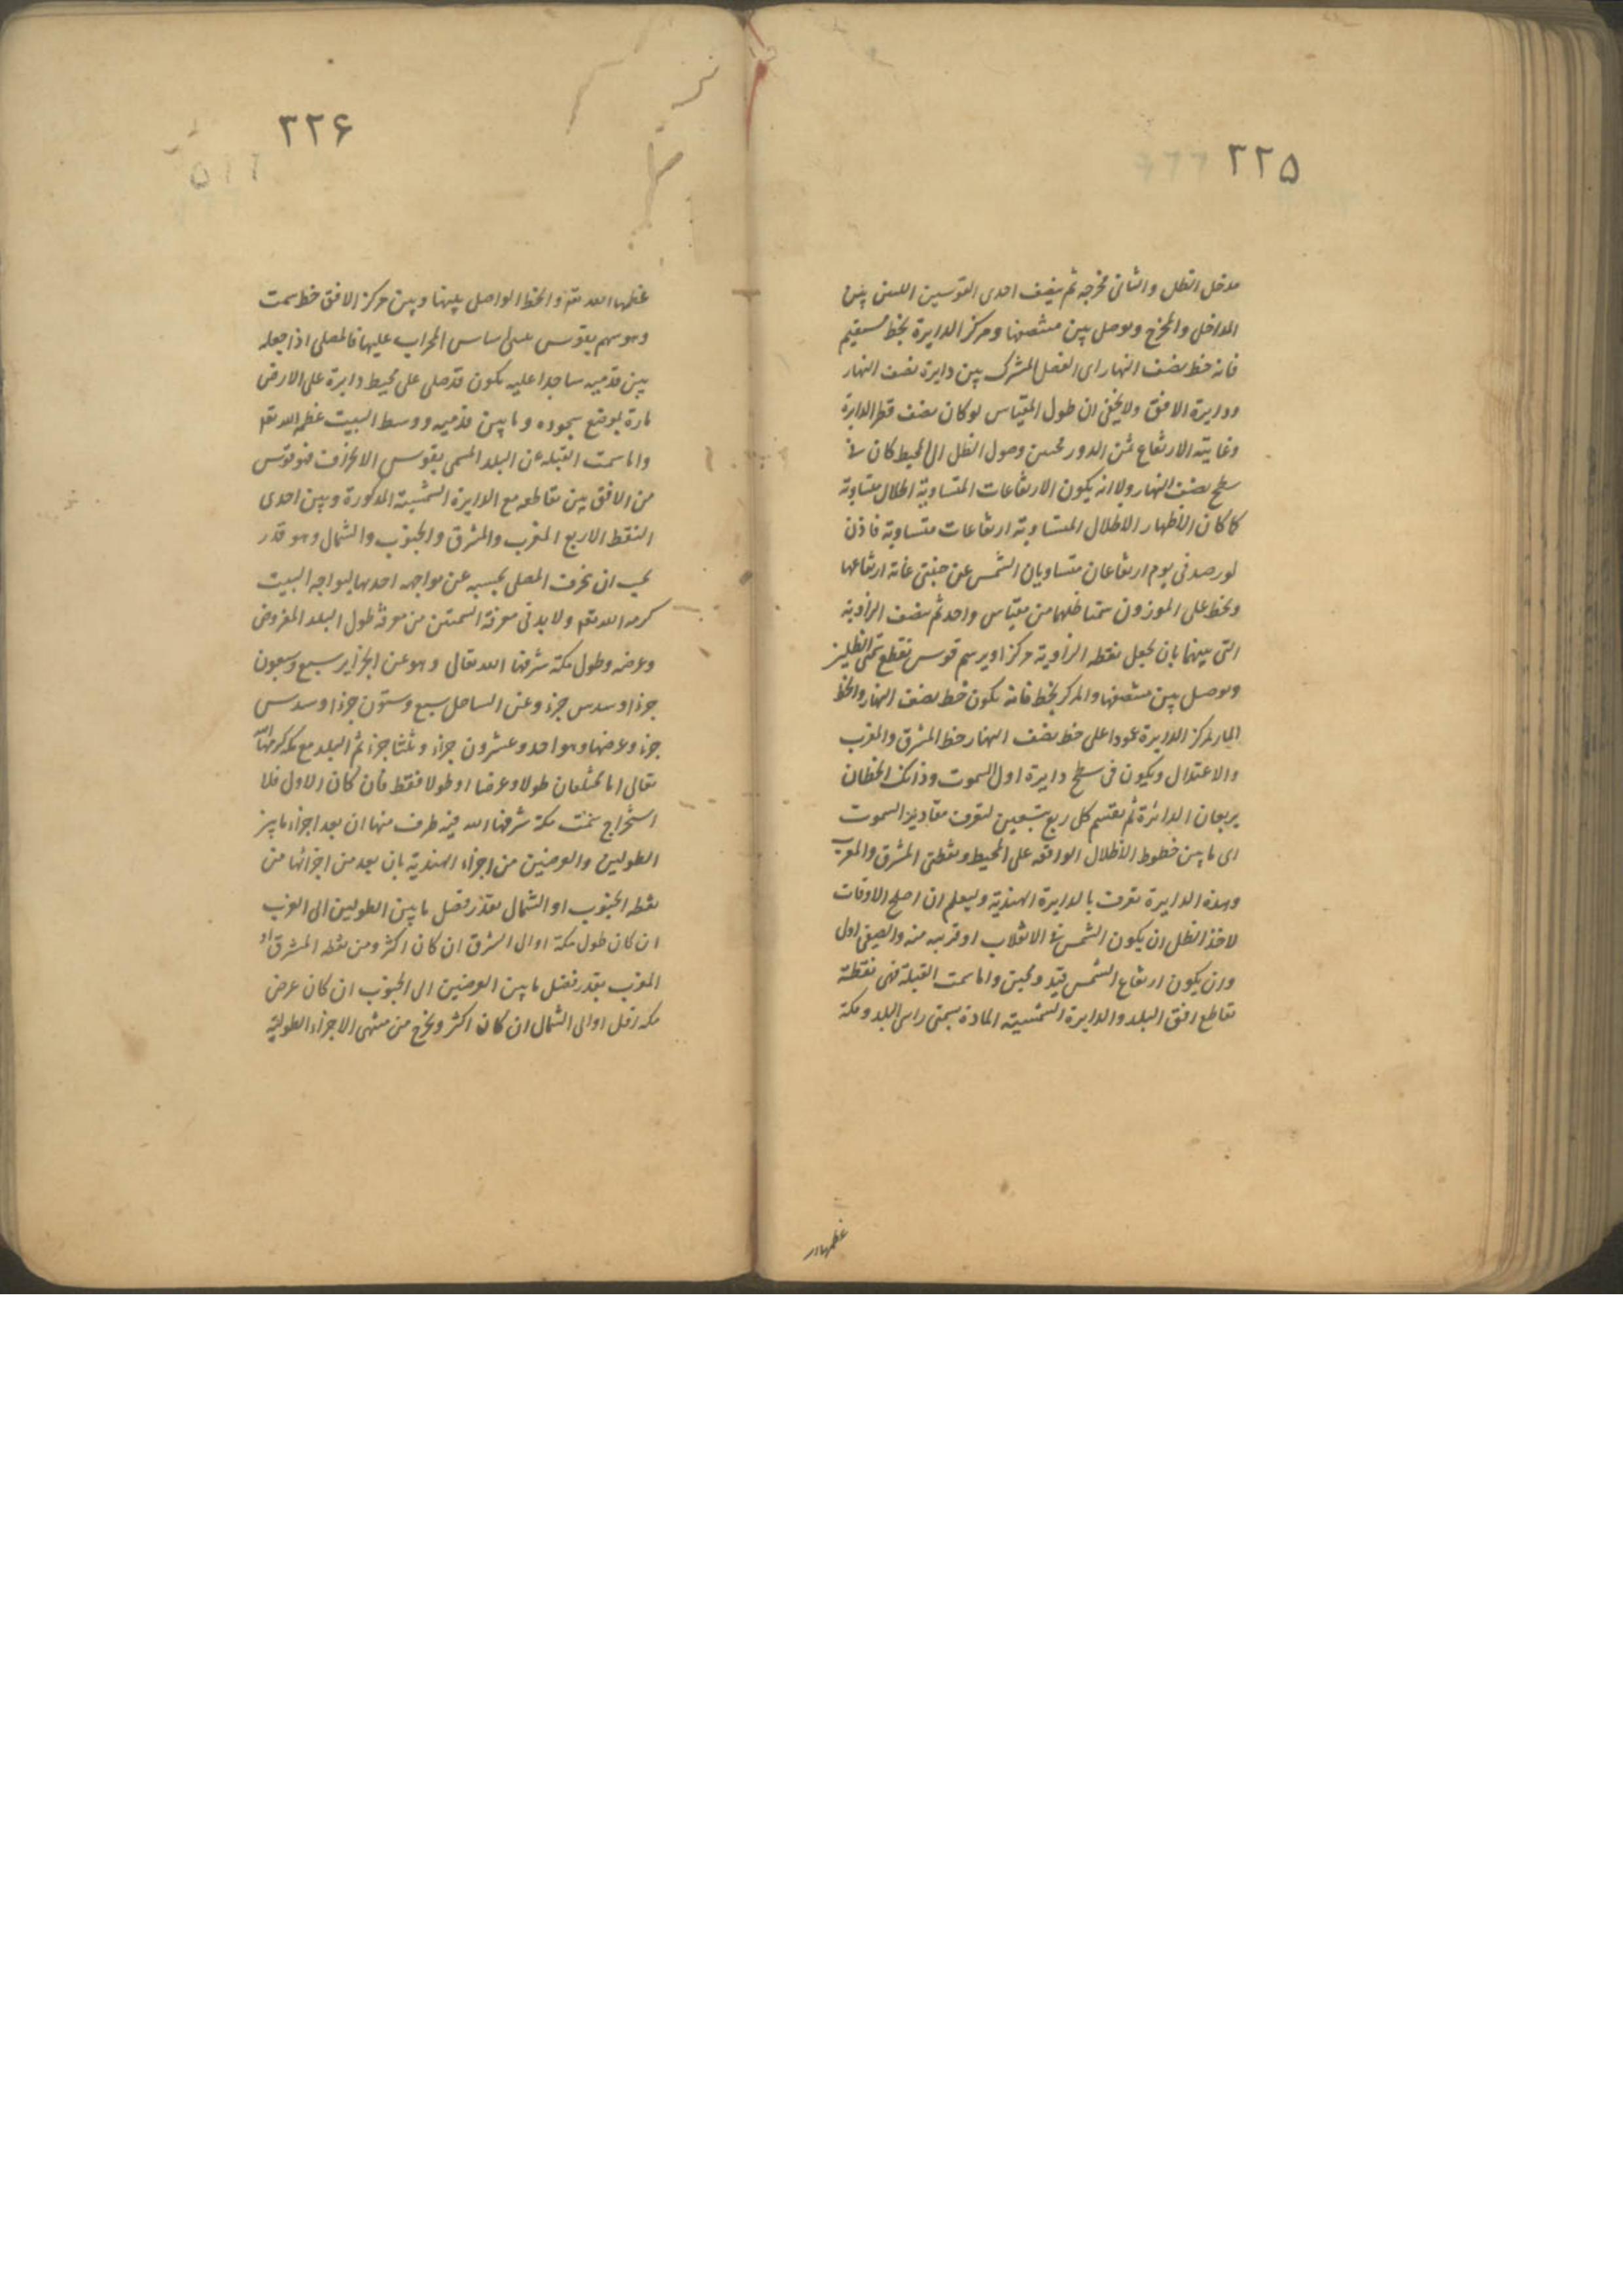 ٢٢۵
مدخل الظل والثانى مخرجه ثم ينصف احدى القوسين اللتين بين
المداخل والمخرج ويوصل بين منتصفها ومركز الدايرة بخط مستقيم
فانه خط نصف النهار اى الفصل المشترك بين دايرة نصف النهار
ودايرة الافق ولا يخفى ان طول المقياس لو كان نصف قطر الدايرة
وغاية الارتفاع ثمن الدور فحين وصول الظل الى المحيط كان فى
سطح نصف النهار ولانه يكون الارتفاعات المتساوية اظلال متساوية
كما كان الاظلال المتساوية ارتفاعات متساوية فاذن
لو رصد فى يوم ارتفاعان متساويان الشمس عن جنبتى غاية ارتفاعها
وخط على الموزون سمتا ظلهما من مقياس واحد ثم نصف الزاوية
التى بينهما بان يجعل نقطة الزاوية مركزا ويرسم قوس تقطع سمتى الظلين
ويوصل بين منتصفها والمركز بخط فانه يكون خط نصف النهار والخط
المار بمركز الدايرة عمودا على خط نصف النهار خط المشرق والمغرب
والاعتدال ويكون فى سطح دايرة اول السموت وذانك الخطان
يربعان الدائرة ثم يقسم كل ربع بتسعين لتعرف مقادير السموت
اى ما بين خطوط الاظلال الواقعه على المحيط ونقطتى المشرق والمغرب
وهذه الدايرة تعرف بالدايرة الهندية وليعلم ان اصلح الاوقات
لاخذ الظل ان يكون الشمس فى الانقلاب او قريبه منه والصيفى اولى
وان يكون ارتفاع الشمس واما سمت القبلة فهى نقطة
تقاطع افق البلد والدايرة السمتية المارة بسمتى راس البلد ومكة
عظمها الله
٢٢۶
عظمها الله تعا والخط الواصل بينها وبين مركز الافق خط سمت
وهو سهم بقوس يبنى اساس المحراب عليها فالمصلى اذا جعله
بين قدميه ساجدا عليه يكون قد صلى على محيط دايرة على الارض
مارة بموضع سجوده وما بين قدميه ووسط البيت عظمه الله تعا
واما سمت القبلة عن البلد المسمى بقوس الانحراف فهو قوس
من الافق بين تقاطعه مع الدايرة السمتية المذكورة وبين احدى
النقط الاربع المغرب والمشرق والجنوب والشمال وهو قدر
يجب ان ينحرف المصلى بحسبه عن مواجهه احدها ليواجه البيت
كرمه الله تعا ولا بد فى معرفة السمتين من معرفة طول البلد المفروض
وعرضه وطول مكة شرفها الله تعالى وهو عن الجزاير سبع وسبعون
جزءا وسدس جزء وعن الساحل سبع وستون جزءا وسدس
جزء وعرضها وهو احد وعشرون جزاء وثلثا جزء ثم البلد مع مكه كرمها الله
تعالى اما مختلفان طولا وعرضا او طولا فقط فان كان الاول فلا
استخراج سمت مكة شرفها الله فيه طرف منها ان يعد اجزاء ما بين
الطولين والعرضين من اجزاء الهندية بان يعد من اجزائها من
نقطه الجنوب او الشمال بقدر فضل ما بين الطولين الى الغرب
ان كان طول مكة او الى الشرق ان كان اكثر ومن نقطه المشرق او
المغرب بقدر فضل ما بين العرضين الى الجنوب ان كان عرض
مكه اقل او الى الشمال ان كان اكثر ويخرج من منتهى الاجزاء الطولية